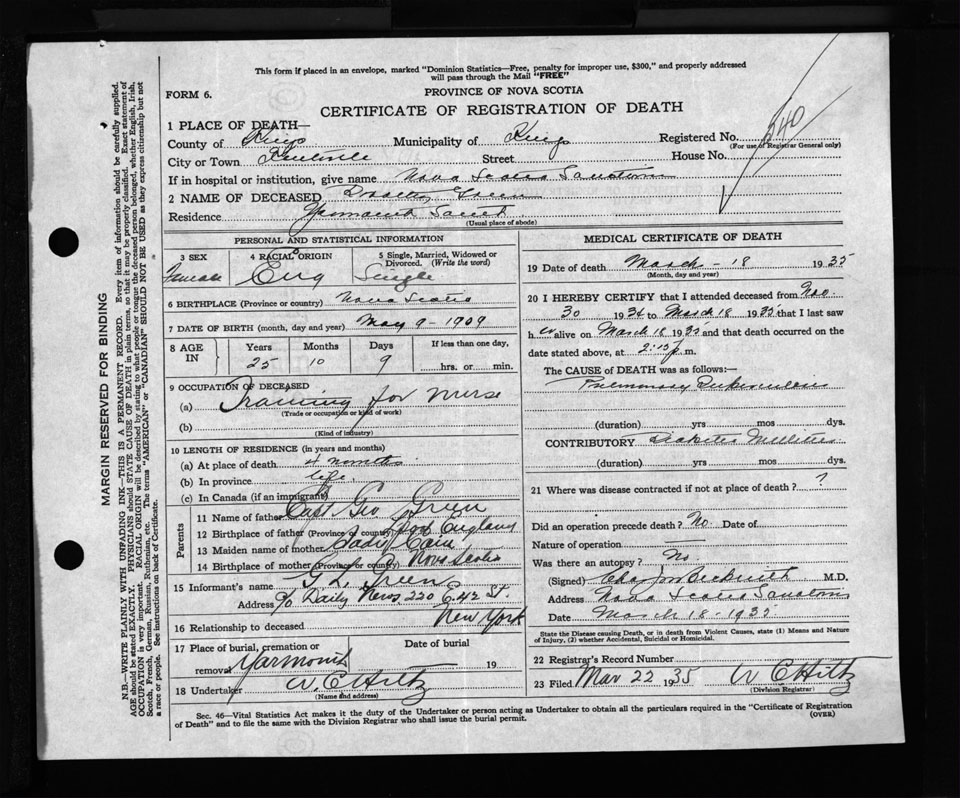 This form if placed in an envelope, marked "Dominion Statistics—Free, penalty for improper use, $300," and properly addressed
will pass through the Mail "FREE"
FORM 6.
PROVINCE OF NOVA SCOTIA
CERTIFICATE OF REGISTRATION OF DEATH
1 PLACE OF DEATH—
County of Kings Municipality of Kings Registered No. 540
(For use of Registrar General only)
City or Town Kentville Street House No.
If in hospital or institution, give name Nova Scotia Sanatorium
2 NAME OF DECEASED Green
Residence Yarmouth
(Usual place of abode)
PERSONAL AND STATISTICAL INFORMATION
3 SEX 4 RACIAL ORIGIN 5 Single, Married, Widowed or Divorced. (Write the word)
Female Eng Single
6 BIRTHPLACE (Province or country) Nova Scotia
7 DATE OF BIRTH (month, day and year) May 9 - 1909
8 AGE IN Years Months Days If less than one day,
25 10 9 hrs. or min.
9 OCCUPATION OF DECEASED
(a) Training for Nurse
(Trade or occupation or kind of work)
(b)
(Kind of industry)
10 LENGTH OF RESIDENCE (in years and months)
(a) At place of death 4 months
(b) In province life.
(c) In Canada (if an immigrant)
Parents
11 Name of father Capt Geo Green
12 Birthplace of father (Province or country) England
13 Maiden name of mother Sadie Cain
14 Birthplace of mother (Province or country) Nova Scotia
15 Informant's name G. L. Green
Address c/o Daily News 220 E. 42 St.
New York
16 Relationship to deceased
17 Place of burial, cremation or removal Yarmouth Date of burial 19
18 Undertaker W. E. Hiltz
(Name and address)
MEDICAL CERTIFICATE OF DEATH
19 Date of death March - 18 1935
(Month, day and year)
20 I HEREBY CERTIFY that I attended deceased from Nov
30 1934 to March 18 1935 that I last saw
h er alive on March 18 1935 and that death occurred on the
date stated above, at 2:15 p. m.
The CAUSE of DEATH was as follows:—
Pulmonary Tuberculosis
(duration) yrs mos dys.
CONTRIBUTORY Diabetes Mellitus
(duration) yrs mos dys.
21 Where was disease contracted if not at place of death? ?
Did an operation precede death? No Date of
Nature of operation —
Was there an autopsy? No.
(Signed) Beckwith M.D.
Address Nova Scotia Sanatorium
Date March 18 - 1935
State the Disease causing Death, or in death from Violent Causes, state (1) Means and Nature
of Injury, (2) whether Accidental, Suicidal or Homicidal.
22 Registrar's Record Number
23 Filed Mar 22 1935 W E Hiltz
(Division Registrar)
Sec. 46—Vital Statistics Act makes it the duty of the Undertaker or person acting as Undertaker to obtain all the particulars required in the "Certificate of Registration
of Death" and to file the same with the Division Registrar who shall issue the burial permit.
(OVER)
MARGIN RESERVED FOR BINDING
N.B.—WRITE PLAINLY WITH UNFADING INK—THIS IS A PERMANENT RECORD. Every item of information should be carefully supplied.
AGE should be stated EXACTLY. PHYSICIANS should STATE CAUSE OF DEATH in plain terms, so that it may be properly classified. Exact statement of
OCCUPATION is very important. RACIAL ORIGIN will be described by stating to what people or tongue the deceased person belonged, whether English, Irish,
Scotch, French, German, Russian, Ruthenian, etc. The terms "AMERICAN" or "CANADIAN" SHOULD NOT BE USED as they express citizenship but not
a race or people. See instructions on back of Certificate.